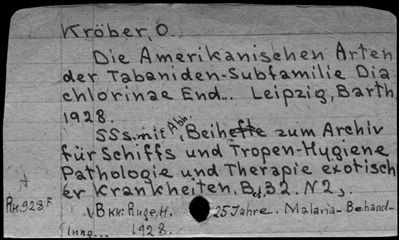 Kröber, O.
Die Amerikanischen Arten
der Tabaniden-Subfamilie Dia
chlorinae End... Leipzig, Barth
1928.
SSs. mit Abb. Beihefte zum Archiv
für Schiffs und Tropen-Hygiene
Pathologie und Therapie exotisch
er Krankheiten. Bd 32. N2.
Вкн: Ruge, H. 25 Jahre. Malaria-Behand-
lung... 1928.